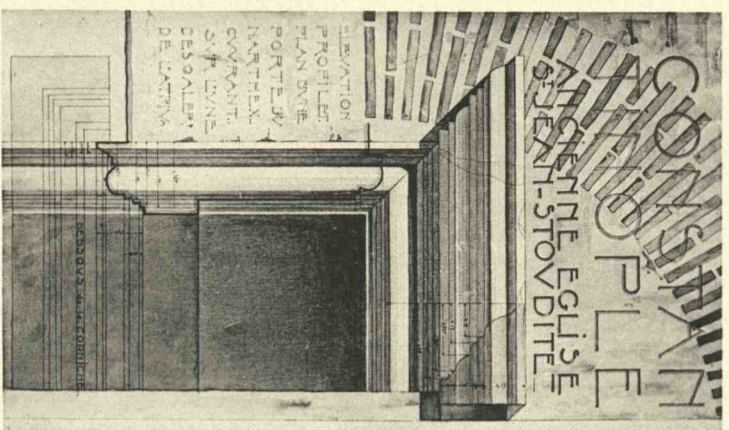 CONSTAN
TINOPLE
ANCIENNE EGLISE
ST JEAN-STOVDITE
ELEVATION
PROFIL ET
PLAN D'UNE
PORTE DV
NARTHEX
OVVRANT
SVR L'VNE
DE L'ATRIVM
DESSOVS DE LA CORNICHE